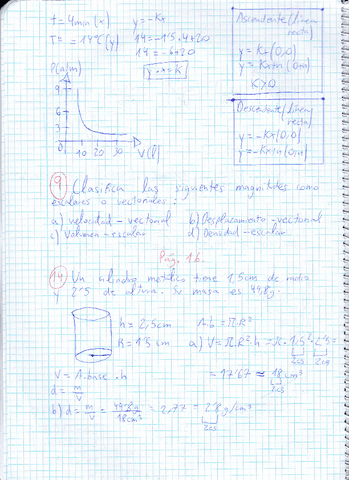 t = 4 min (x)
y = -Kx
T = -14°C (y)
14 = -1'5 · 4 + 20
14 = -6 + 20
y · x = K
Ascendente (línea recta)
y = Kx (0,0)
y = Kx + n (0,n)
K > 0
Descendente (línea recta)
y = -Kx (0,0)
y = -Kx + n (0,n)
P(atm)
9
6
3
0
10 20 30
V(l)
9 Clasifica las siguientes magnitudes como
escalares o vectoriales:
a) velocidad - vectorial b) Desplazamiento - vectorial
c) Volumen - escalar d) Densidad - escalar
Pág. 16.
14 Un cilindro metálico tiene 1,5cm de radio
y 2'5 de altura. Su masa es 49,8g.
h = 2,5cm
A.b = π·R²
R = 1'5 cm
a) V = π·R²·h = π·1'5²·2'5 =
2cs 2cs
V = A.base · h
= 17'67 ≈ 18 cm³
2cs
d = m/v
b) d = m/v = 49'8g/18cm³ = 2,77 = 2'8 g/cm³
2cs